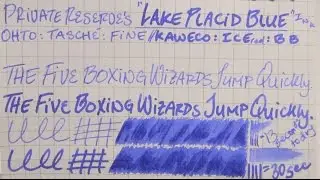 PRIVATE RESERVE'S "LAKE PLACID BLUE" INK
OHTO: TASCHE: FINE//KAWECO: ICE: BB
THE FIVE BOXING WIZARDS JUMP QUICKLY.
THE FIVE BOXING WIZARDS JUMP QUICKLY.
= 30 sec